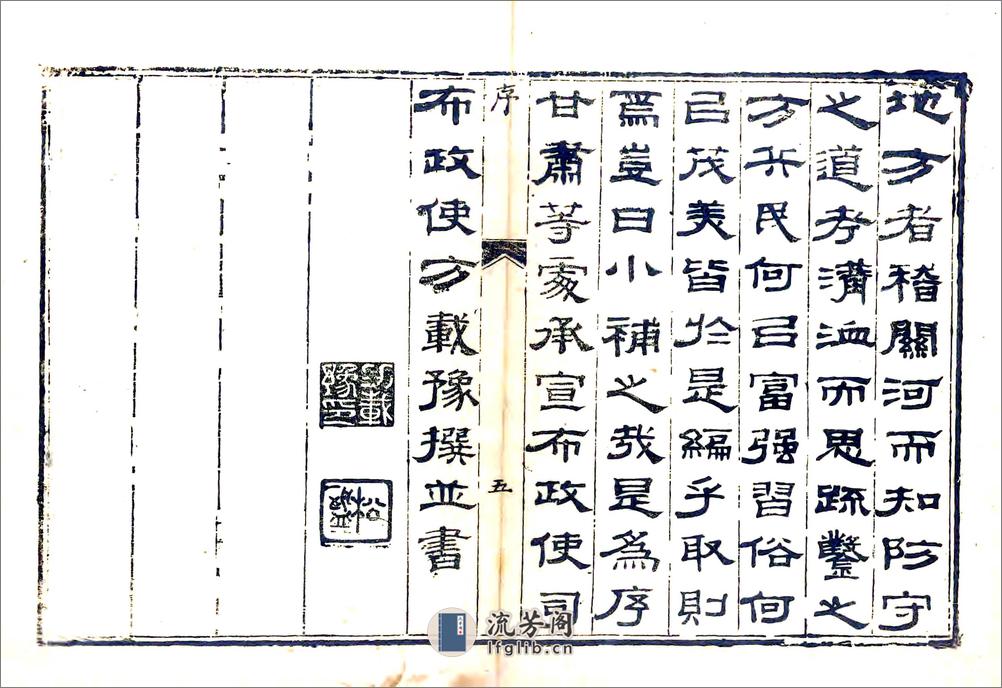 地方者稽關河而知防守
之道考溝洫而思疏鑿之
方兵民何㠯富强習俗何
㠯茂美皆於是編乎取則
焉豈曰小補之哉是為序
甘肅等處承宣布政使司
序
五
布政使方載豫撰並書
方載豫印
流芳阁
lfglib.cn